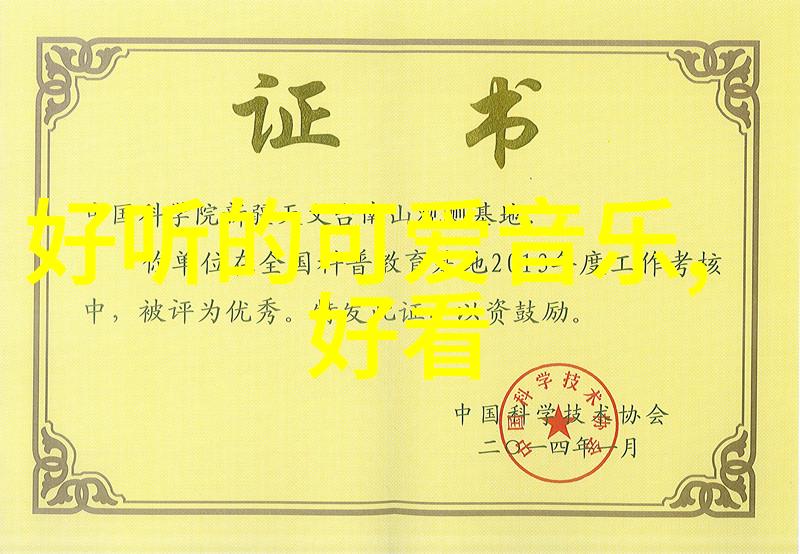 证 书
中国科学院新疆天文台南山观测基地:
好听的可爱音乐,
你单位在全国科普教育基地2013年度工作考核
中，被评为优秀。特发此证，以资鼓励。
好看
中国科学技术协会
中国科学技术协会
二〇一四年一月